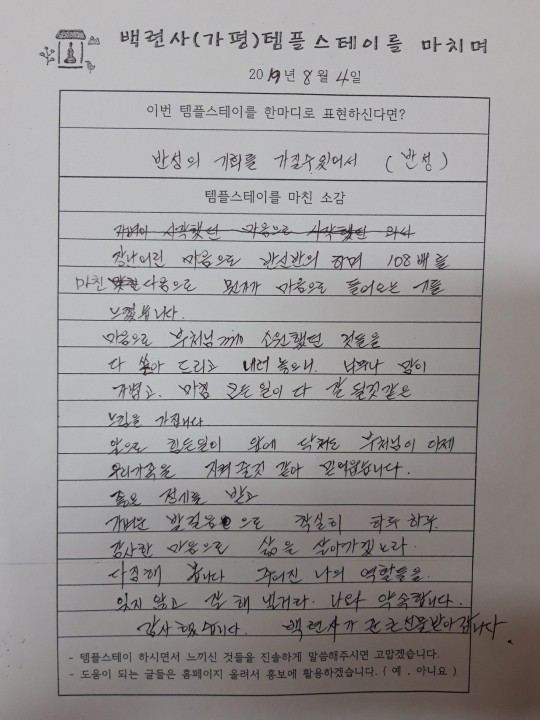 백련사(가평)템플스테이를 마치며
2019년 8월 4일
이번 템플스테이를 한마디로 표현하신다면?
반성의 기회를 가질수있어서 (반성)
템플스테이를 마친 소감
시작했던 마음으로 시작했던
장난어린 마음으로 반신반의 하며 108배를
마친 다음으로 뭔가가 마음으로 들어오는 걸
느꼈습니다.
마음으로 부처님께 소원했던 것들을
다 쏟아 드리고 내려 놓으니. 너무나 맘이
가볍고. 마침 모든일이 다 잘 될것같은
느낌을 가집니다
앞으로 힘든일이 앞에 닥쳐도 부처님이 이제
우리가족을 지켜 줄것 같아 믿어봅니다.
좋은 정기를 받고
가벼운 발걸음으로 착실히 하루 하루.
감사한 마음으로 삶을 살아가겠노라.
다짐해 봅니다 주어진 나의 역할들을.
잊지 않고 잘 해 낼거라. 나와 약속합니다.
감사했습니다. 백련사가 큰 선물받아갑니다.
- 템플스테이 하시면서 느끼신 것들을 진솔하게 말씀해주시면 고맙겠습니다.
- 도움이 되는 글들은 홈페이지 올려서 홍보에 활용하겠습니다.( 예 , 아니요 )